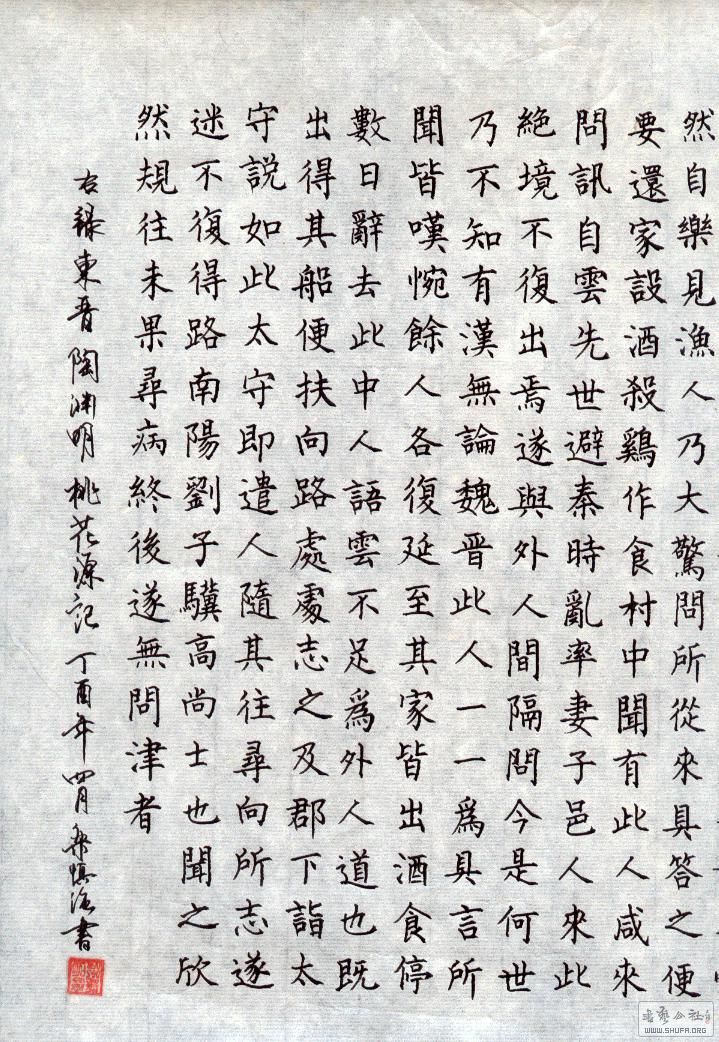 然自樂見漁人乃大驚問所從來具答之便
要還家設酒殺鷄作食村中聞有此人咸來
問訊自雲先世避秦時亂率妻子邑人來此
絶境不復出焉遂與外人間隔問今是何世
乃不知有漢無論魏晋此人一一爲具言所
聞皆嘆惋餘人各復延至其家皆出酒食停
數日辭去此中人語雲不足爲外人道也既
出得其船便扶向路處處志之及郡下詣太
守説如此太守即遣人隨其往尋向所志遂
迷不復得路南陽劉子驥高尚士也聞之欣
然規往未果尋病終後遂無問津者
右録東晋陶渊明桃花源記丁酉年四月書
书艺公社
WWW.SHUFA.ORG